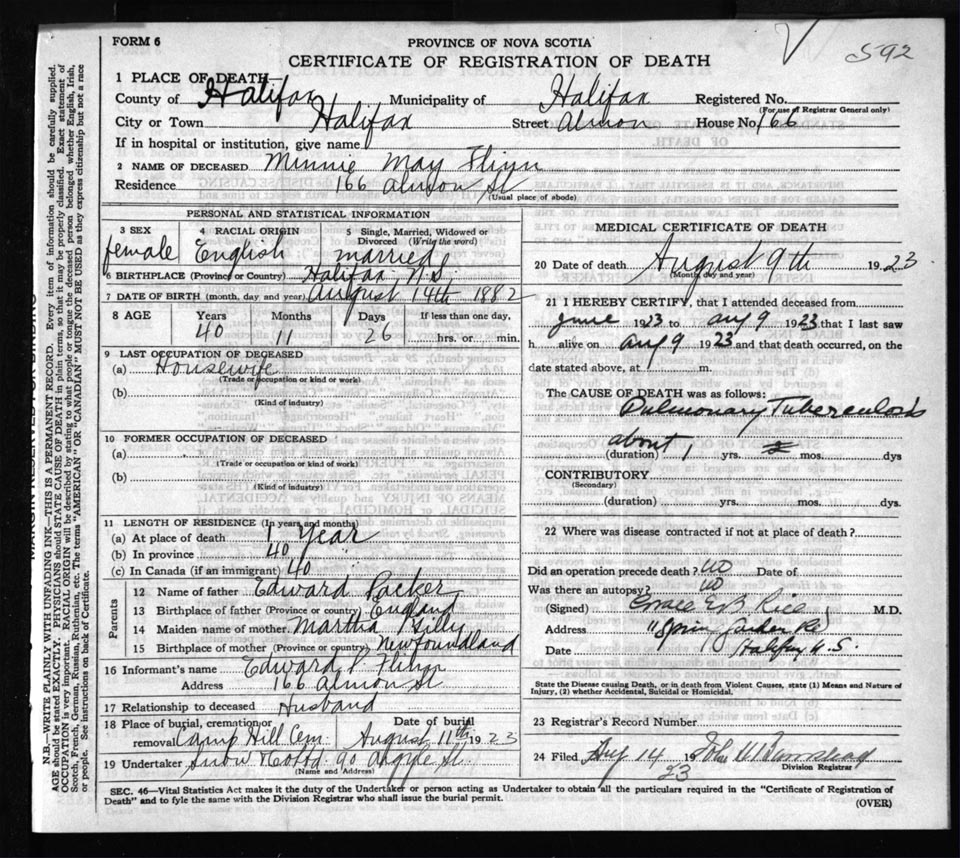 FORM 6
PROVINCE OF NOVA SCOTIA
592
CERTIFICATE OF REGISTRATION OF DEATH
1 PLACE OF DEATH—
County of Halifax Municipality of Halifax Registered No.
(For use of Registrar General only)
City or Town Halifax Street Almon House No. 166
If in hospital or institution, give name
2 NAME OF DECEASED Minnie May Flinn
Residence 166 Almon St
(Usual place of abode)
PERSONAL AND STATISTICAL INFORMATION
3 SEX 4 RACIAL ORIGIN 5 Single, Married, Widowed or
Divorced (Write the word)
female English married
6 BIRTHPLACE (Province or Country) Halifax N.S.
7 DATE OF BIRTH (month, day and year) August 14th 1882
8 AGE Years Months Days If less than one day,
40 11 26 hrs. or min.
9 LAST OCCUPATION OF DECEASED
(a) Housewife
(Trade or occupation or kind or work)
(b)
(Kind of industry)
10 FORMER OCCUPATION OF DECEASED
(a)
(Trade or occupation or kind of work)
(b)
(Kind of industry)
11 LENGTH OF RESIDENCE (In years and months)
(a) At place of death 1 Year
(b) In province 40
(c) In Canada (if an immigrant) 40
Parents
12 Name of father Edward Packer
13 Birthplace of father (Province or country) England
14 Maiden name of mother Martha Gilly
15 Birthplace of mother (Province or country) Newfoundland
16 Informant's name Edward P Flinn
Address 166 Almon St
17 Relationship to deceased Husband
18 Place of burial, cremation or Date of burial
removal Camp Hill Cem August 11th 1923
19 Undertaker Snow & Co 90 Argyle St.
(Name and Address)
MEDICAL CERTIFICATE OF DEATH
20 Date of death August 9th 1923
(Month, day and year)
21 I HEREBY CERTIFY, that I attended deceased from
June 1923 to Aug 9 1923 that I last saw
h alive on Aug 9 1923 and that death occurred, on the
date stated above, at m.
The CAUSE OF DEATH was as follows:
Pulmonary Tuberculosis
about 1
(duration) yrs. mos. dys
CONTRIBUTORY
(Secondary)
(duration) yrs. mos. dys.
22 Where was disease contracted if not at place of death?
Did an operation precede death? no Date of
Was there an autopsy? no
(Signed) Grace E B Rice M.D.
Address " Spring Garden Rd
Date Halifax N.S.
State the Disease causing Death, or in death from Violent Causes, state (1) Means and Nature of
Injury, (2) whether Accidental, Suicidal or Homicidal.
23 Registrar's Record Number
24 Filed Aug 14 19 23
Division Registrar
SEC. 46—Vital Statistics Act makes it the duty of the Undertaker or person acting as Undertaker to obtain all the particulars required in the "Certificate of Registration of
Death" and to fyle the same with the Division Registrar who shall issue the burial permit.
(OVER)
MARGIN RESERVED FOR BINDING
N.B.—WRITE PLAINLY WITH UNFADING INK—THIS IS A PERMANENT RECORD. Every item of information should be carefully supplied.
AGE should be stated EXACTLY. PHYSICIANS should STATE CAUSE OF DEATH in plain terms, so that it may be properly classified. Exact statement of
OCCUPATION is very important. RACIAL ORIGIN will be described by stating to what people or tongue the deceased person belonged whether English, Irish,
Scotch, French, German, Russian, Ruthenian, etc. The terms "AMERICAN" OR "CANADIAN" MUST NOT BE USED as they express citizenship but not a race
or people. See instructions on back of Certificate.